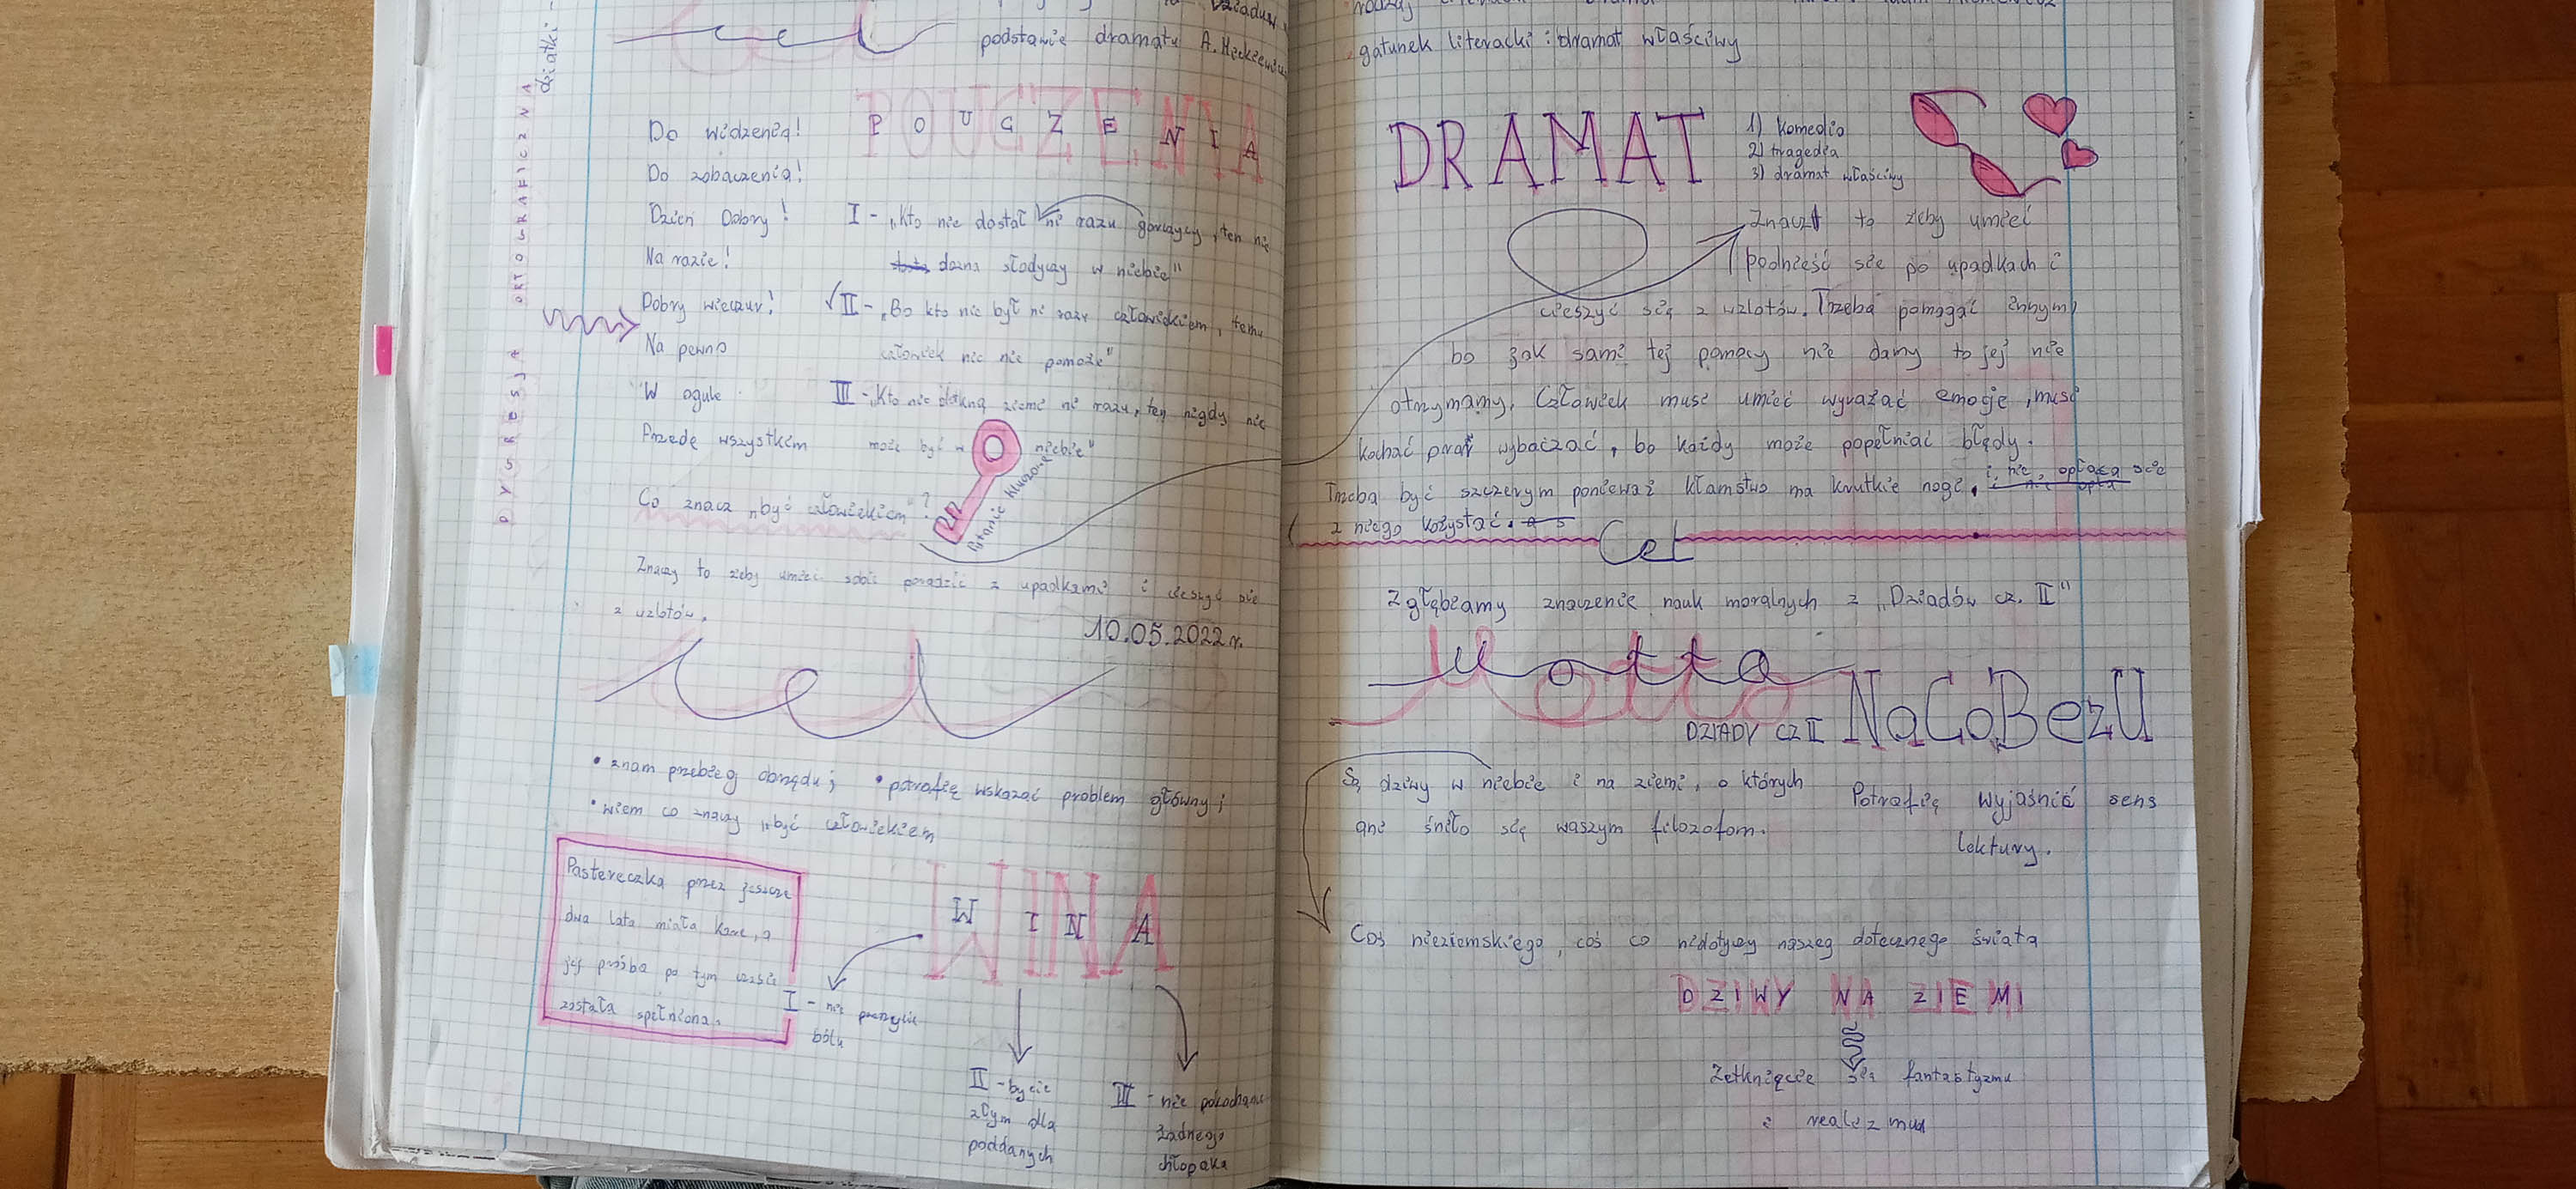 działki -
podstawie dramatu A. Mickiewicza
DYSRESJA ORTOGRAFICZNA
POUCZENIA
Do widzenia!
Do zobaczenia!
Dzień Dobry!
Na razie!
Dobry wieczur!
Na pewno
W ogule
Przede wszystkim
I - „Kto nie dostał ni razu goryczy, ten nie
dozna słodyczy w niebie"
II - „Bo kto nie był ni razu człowiekiem, temu
człowiek nic nie pomoże"
III - „Kto nie dotkną ziemi ni razu, ten nigdy nie
może być w niebie"
Pytanie kluczowe
Co znacz „być człowiekiem"?
Znaczy to żeby umieć sobie poradzić z upadkami i cieszyć sie
z wzlotów.
10.05.2022r.
Cel
• znam przebieg obrzędu; • potrafię wskazać problem główny;
• wiem co znaczy „być człowiekiem
Pastereczka przez jeszcze
dwa lata miała kare, a
jej prośba po tym czasie
została spełniona.
WINA
I - nie przeżycie
bólu
II - bycie
złym dla
poddanych
III - nie pokochanie
żadnego
chłopaka
gatunek literacki: dramat właściwy
DRAMAT
1) komedia
2) tragedia
3) dramat właściwy
Znaczy to żeby umieć
podnieść sie po upadkach i
cieszyć się z wzlotów. Trzeba pomagać innym,
bo jak sami tej pomocy nie damy to jej nie
otrzymamy. Człowiek musi umieć wyrażać emocje, musi
kochać wybaczać, bo każdy może popełniać błędy.
Trzeba być szczerym ponieważ kłamstwo ma krutkie nogi, i nie opłaca sie
z niego kożystać.
Cel
Zgłębiamy znaczenie nauk moralnych z „Dziadów cz. II"
Motto
DZIADY CZ II NaCoBezU
Są dziwy w niebie i na ziemi, o których
ani śniło się waszym filozofom.
Potrafię wyjaśnić sens
lektury.
Coś nieziemskiego, coś co niedotyczy naszeg dotecznego świata
DZIWY NA ZIEMI
Zetknięcie się fantastyzmu
i realizmu